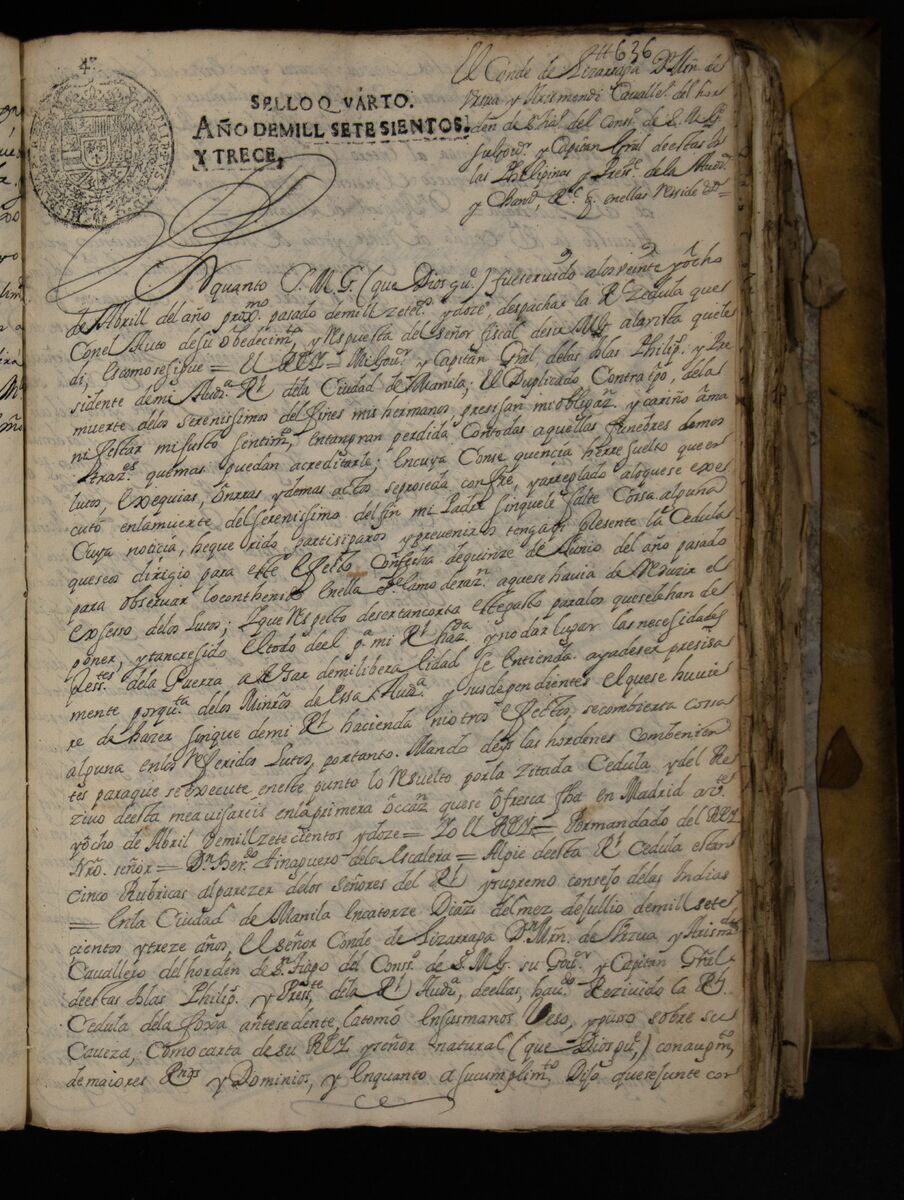 4º
636
SELLO QVARTO.
AÑO DEMILL SETESIENTOS,
Y TRECE,
El Conde de Lizarrapa Dn Mrn de
Vrsua y Arismendi Cavalle. del hor
den de S.tiago del Cons.o de S. M.
su Govr. y Capitan Gral destas Is
las Phelipinas y Press.te de la Aud.a
y Chan.a Rl q. en ellas Reside &ª =
Por quanto S. M. G. (que Dios gu.e) fue seruido a los veinte y ocho
de Abrill del año prox.mo pasado de mill zetec.s y doze, despachar la Rl Zedula que
Con el Auto de su obedecim.to y Respuesta del señor fiscal de su Mg. a la vista que le
di, es como se sigue = El REY = Mi Gour. y Capitan Gral de las Islas Philip.s y Pre
sidente de mi Aud.a Rl de la Ciudad de Manila; El Duplicado Contratpo, de la
muerte de los serenissimos Delfines mis hermanos, presisan mi obligaz.n y cariño a ma
nifestar mi justo sentim.to, en tan gran perdida con todas aquellas funebres demos
traz.es que mas puedan acreditarle; en cuya Consequencia he rresuelto que en
lutos, exequias, onrras y demas actos se proseda con fhe, y arreglado a lo que se exe
cutó en la muerte del serenissimo delfin mi Padre sin que le falte Cossa alguna
Cuya noticia, he querido partisiparos y preveniros tengais presente la Cedula
que se os dirigio para este efecto con fecha de quinze de Junio del año pasado
para observar lo conthenido en ella
exsesso de los Lutos; y que Respecto de ser tan corta este gasto para los que se la han de
poner, y tan cresido el todo de el p.a mi Rl haz.da y no dar lugar las necesidades
press.tes de la Guerra a usar de mi liberalidad se entienda aya de ser presisa
mente por q.ta de los Minros de essa Aud.a y sus dependientes el que se huvie
re de hazer sin que de mi Rl hacienda ni otros efectos, se combierta cossa
alguna en los Referidos Lutos, por tanto. Mando deys las hordenes Combenien
tes para que se execute en este punto lo Resuelto por la zitada Cedula y del Re
zivo de esta me avisareis en la primera occaz.n que se ofresca fha en Madrid a v.te
y ocho de Abril de mill zetecientos y doze = YO EL REY = Por mandado del REY
Nro. señor = Dn Ber.do Tinaguero de la Escalera = Al pie de esta Rl Cedula estan
cinco Rubricas al parezer de los señores del Rl y supremo consejo de las Indias
= En la Ciudad de Manila en catorze Diaz del mez de Jullio de mill sete
cientos y treze años, El señor Conde de Lizarrapa Dn Mrn. de Vrzua y Arism.di
Cavallero del horden de S.tiago del Cons.o de S. Mg. su Gour. y Capitan Gnel
de estas Islas Philip.s y Press.te de la Rl Aud.a de ellas, hau.do Rezivido la Rl
Cedula de la foxa antesedente, la tomó en sus manos Veso, y puso sobre su
Caveza, Como carta de su REY y señor natural (que Dios gu.e,) con augm.to
de maiores Rnos y Dominios, y en quanto a su cumplim.to Dijo que se junte con